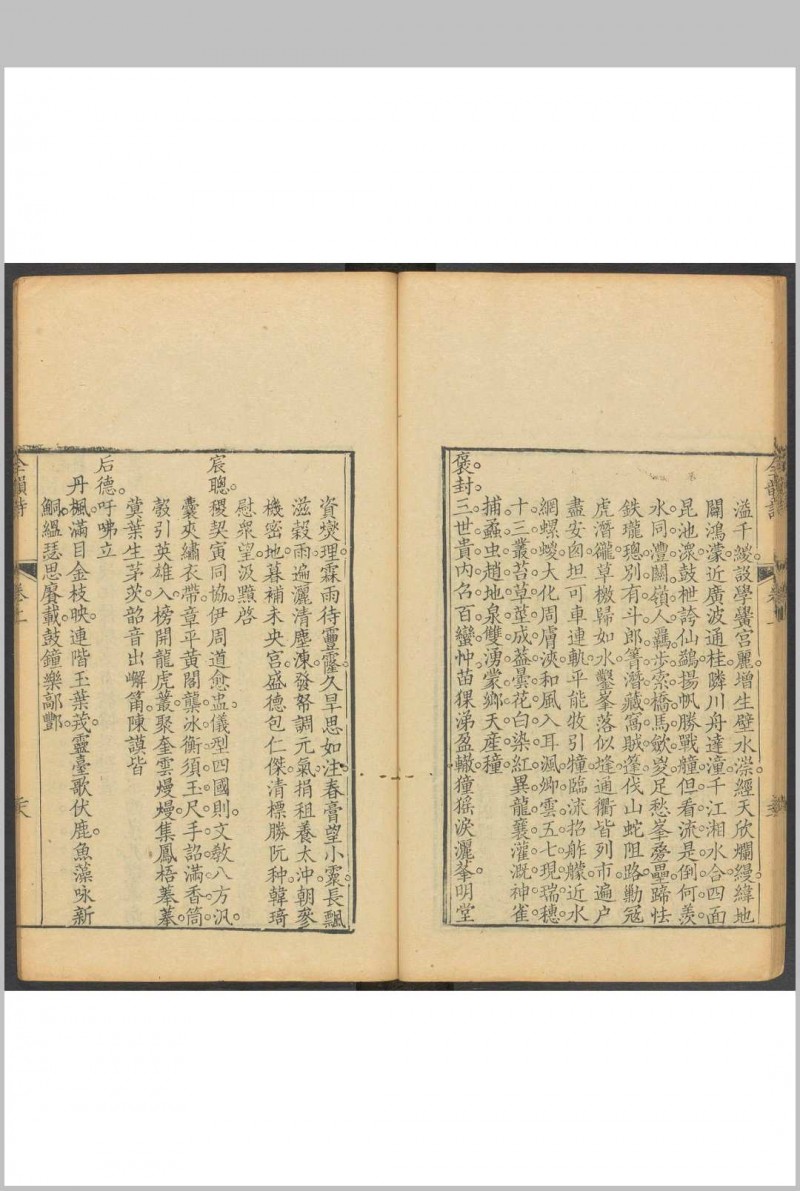 溢千緩設學黌宮麗增生壁水漴經天欣爛縵緯地
闢鴻濛近廣波通桂隣川舟達潼千江湘水合四面
昆池潨鼓枻誇仙鷁揚帆勝戰艟但看流是倒何羨
水同灃闢嶺人羈步索橋馬歛夌足愁峯疊壘蹄怯
鉄瓏璁別有斗郎箐潛藏寫賊蓬伐山蛇阻路勦冠
虎潛巃草檄歸如水鑿峯落似㷭通衢皆列市遍户
盡安囱坦可車連軌平能牧引犝臨沭招舴艨近水
網螺蝬大化周膚浹和風入耳渢卿雲五七現瑞穗
十三叢苔草莖成葢曇花白染紅異龍襄灌溉神雀
捕螽虫趙地泉雙湧蒙鄉天産穜
褒封三世貴内名百蠻忡苗猓涕盈轍獞猺淚灑峯明堂
資爕理霖雨待靊霳久旱思如注春膏望小霥長飄
滋穀雨遍灑清塵涷發帑調元氣捐租養太冲朝參
機密地暮補未央宮盛德包仁傑清標勝阮种韓琦
慰衆望汲黯啓
宸聰稷契寅同協伊周道愈盅儀型四國則文敎八方汎
囊夾繡衣帶章平黃閣龔冰衡須玉尺手詔滿香筒
彀引英雄入榜開龍虎叢聚奎雲熳熳集鳳梧菶菶
蓂葉生茅茨韶音出嶰筩陳謨皆
后德吁咈立
丹楓滿目金枝映連階玉葉茙靈臺歌伏鹿魚藻咏新
鮦緼瑟思賡載鼓鐘樂鄗酆
全韻詩